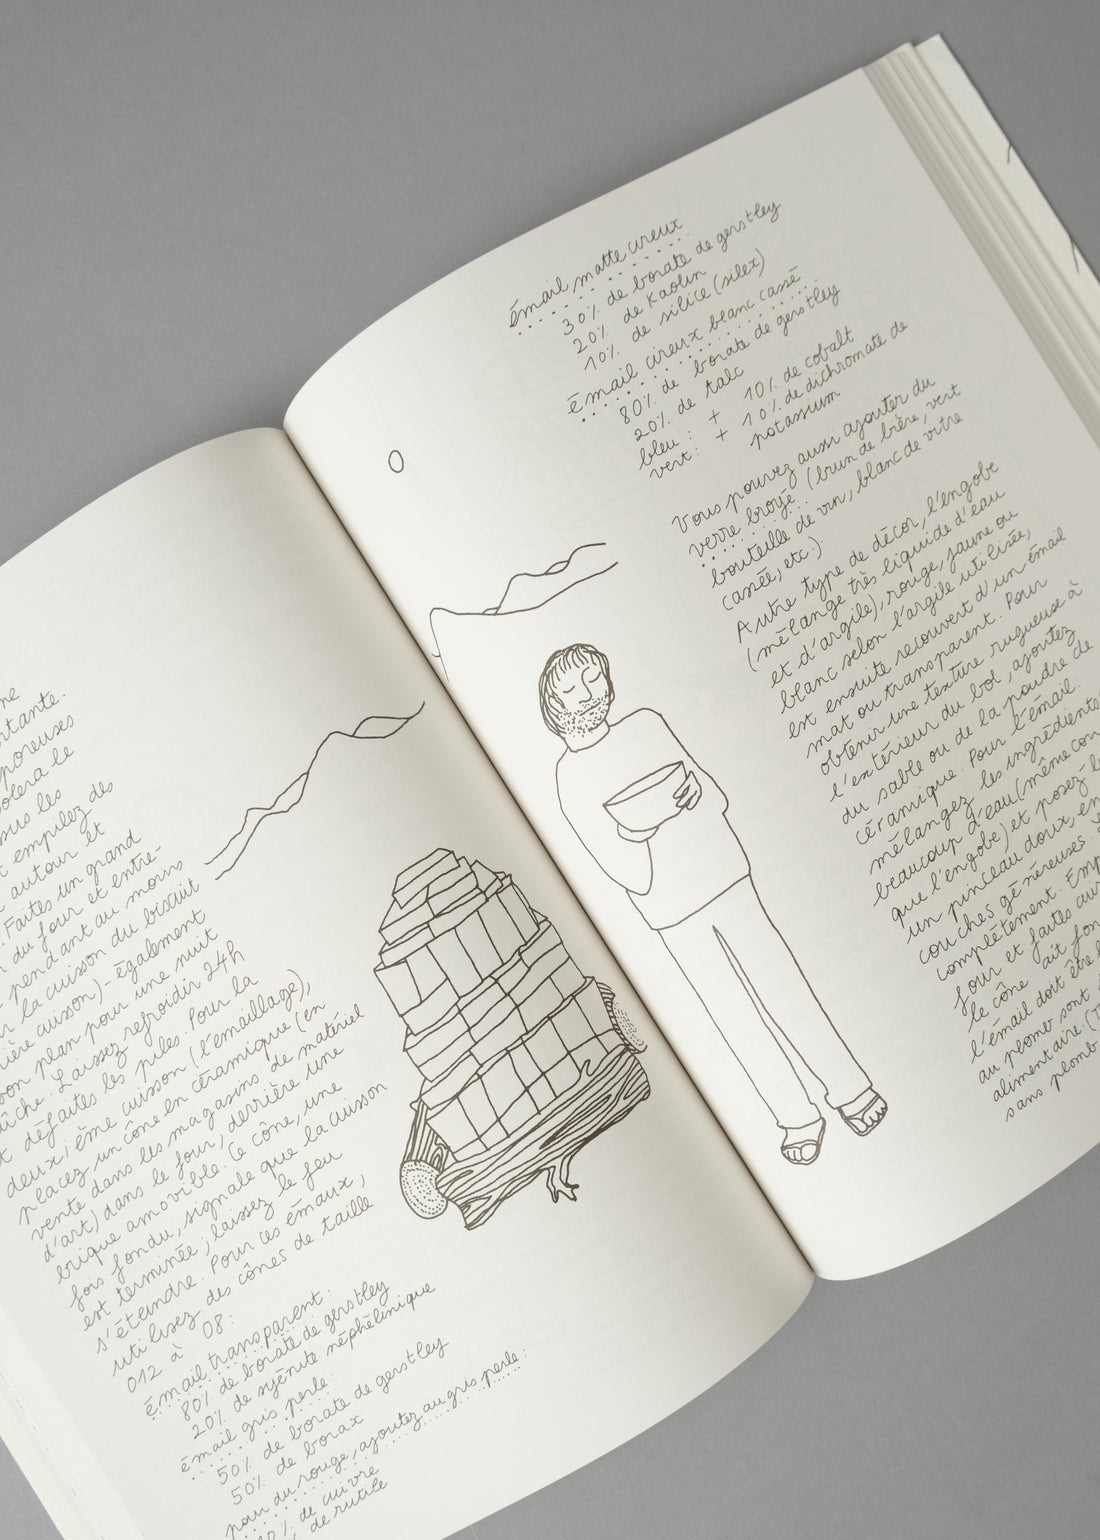 ne
rtante.
poreuses
olera le
sus les
t empilez des
autour et
. Faites un grand
du four et entre-
pendant au moins
r la cuisson du biscuit
ière cuisson) - également
bon plan pour une nuit
ûche. Laissez refroidir 24h
t défaites les piles. Pour la
deuxième cuisson (l'émaillage),
placez un cône en céramique (en
vente dans les magasins de matériel
d'art) dans le four, derrière une
brique amovible. Ce cône, une
fois fondu, signale que la cuisson
est terminée ; laissez le feu
s'éteindre. Pour ces émaux,
utilisez des cônes de taille
012 à 08.
émail transparent :
80% de borate de gerstley
20% de syénite néphélinique
émail gris perle :
50% de borate de gerstley
50% de borax
pour du rouge, ajoutez au gris perle :
10% de cuivre
% de rutile
émail matte cireux
30% de borate de gerstley
20% de Kaolin
10% de silice (silex)
émail cireux blanc cassé
80% de borate de gerstley
20% de talc
bleu : + 10% de cobalt
vert : + 10% de dichromate de
potassium
Vous pouvez aussi ajouter du
verre broyé (brun de bière, vert
bouteille de vin, blanc de vitre
cassée, etc.)
Autre type de décor, l'engobe
(mélange très liquide d'eau
et d'argile), rouge, jaune ou
blanc selon l'argile utilisée,
est ensuite recouvert d'un émail
mat ou transparent. Pour
obtenir une texture rugueuse à
l'extérieur du bol, ajoutez
du sable ou de la poudre de
céramique. Pour l'émail :
mélangez les ingrédients
beaucoup d'eau (même con
que l'engobe) et posez-l
un pinceau doux, en
couches généreuses.
complètement. Emp
four et faites cui
le cône ait fon
l'émail doit être
au plomb sont
alimentaire. (T
sans plomb